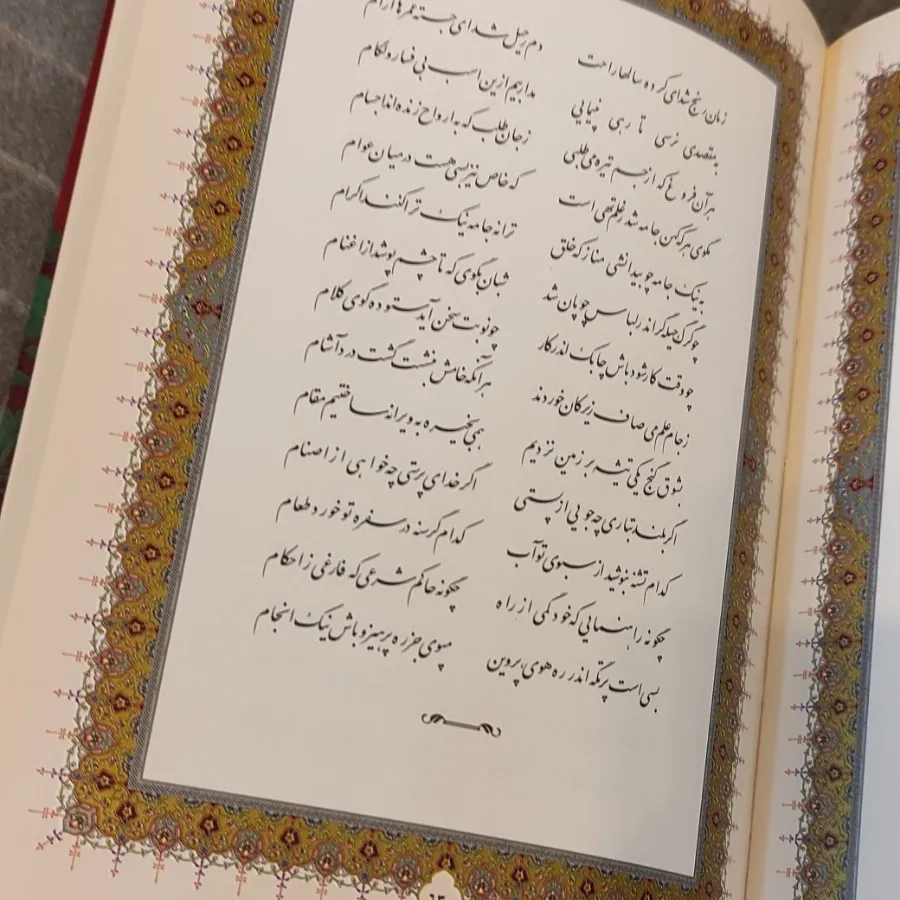 زمان رنج شدای کرده سالها راحت دم رحیل شدای جسته عمرها آرام
به مقصدی نرسی تا رهی نپیمایی مدار بیم ازین اسب بی فسار و لگام
هر آن فروغ که از جسم تیره می طلبی ز جان طلب که به ارواح زنده اند اجسام
مگوی هر که کهن جامه شد ز علم تهی است که خاص نیز بسی هست در میان عوام
به نیک جامه چو بیدانشی مناز که خلق ترا نه جامه نیک ترا کنند اکرام
چو گرگ حیله گر اندر لباس چوپان شد شبان بگوی که تا چشم پوشد از اغنام
چو وقت کار شود باش چابک اندر کار چو نوبت سخن آید ستوده گوی کلام
ز جام علم می صاف زیرکان خوردند هر آنکه خامش بنشست گشت درد آشام
بشوق گنج یکی تیشه بر زمین نزدیم همی بخیره به ویرانه ساختیم مقام
اگر بلند تباری چه جویی از پستی اگر خدای پرستی چه خواهی از اصنام
کدام تشنه بنوشید از سبوی تو آب کدام گرسنه در سفره تو خورد طعام
چگونه راهنمایی که خود گمی از راه چگونه حاکم شرعی که فارغی ز احکام
بسی است پرتگه اندر ره هوی، پروین مپوی جز ره پرهیز و باش نیک انجام